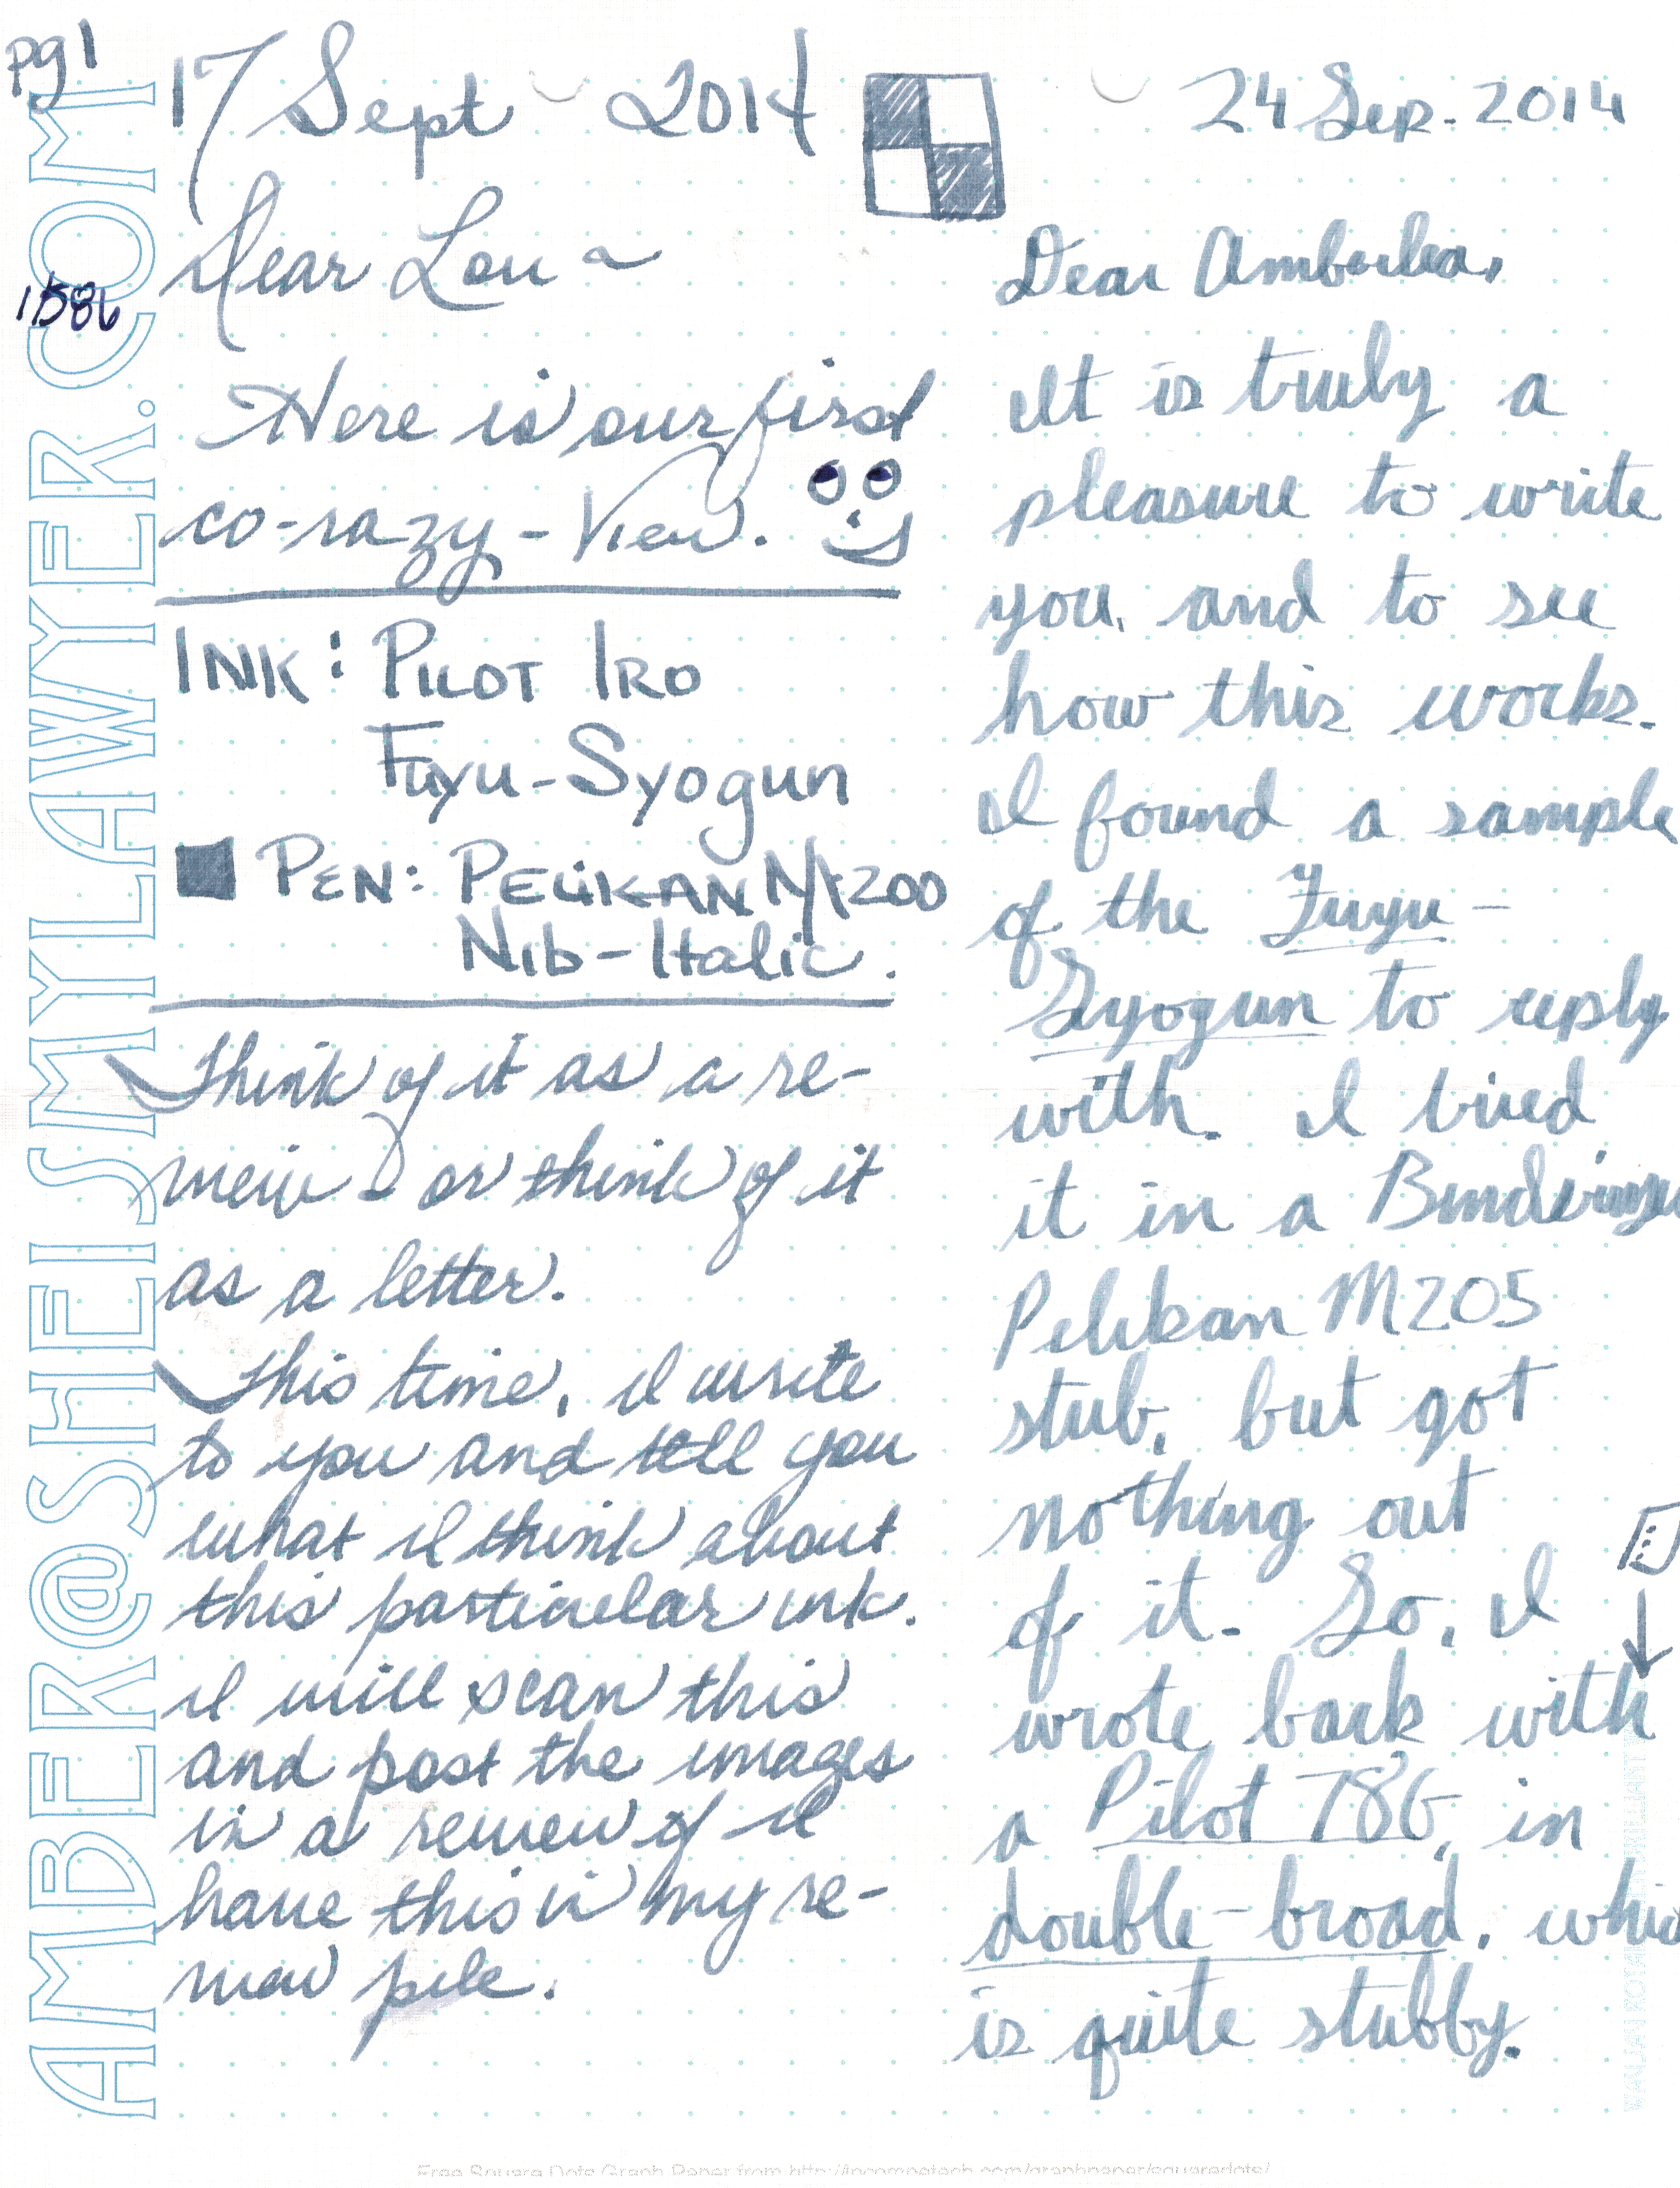 pg 1
17 Sept 2014
Dear Lou ~
1586
Here is our first
co-razy-View.
INK: PILOT IRO
Fuyu-Syogun
PEN: PELIKAN M200
NIB-Italic.
Think of it as a re-
view - or think of it
as a letter.
This time, I write
to you and tell you
what I think about
this particular ink.
I will scan this
and post the images
in a review of I
have this in my re-
view pile.
24 Sep. 2014
Dear Amberlea,
It is truly a
pleasure to write
you, and to see
how this works.
I found a sample
of the Fuyu-
Syogun to reply
with. I tried
it in a
Pelikan M205
stub, but got
nothing out
of it. So, I
wrote back with
a Pilot 78G, in
double-broad, whic
is quite stubby.
AMBER@SHEISMYLAWYER.COM
Free Square Dots Graph Paper from http://incompetech.com/graphpaper/squaredots/